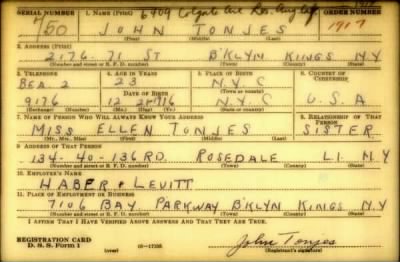 SERIAL NUMBER 1. NAME (Print) 6909 Colgate Ave Los Angeles ORDER NUMBER
750 JOHN TONJES 1917
(First) (Middle) (Last)
2. ADDRESS (Print)
2176 - 71 ST B'KLYN KINGS N.Y
(Number and street or R. F. D. number) (Town) (County) (State)
3. TELEPHONE 4. AGE IN YEARS 5. PLACE OF BIRTH 6. COUNTRY OF CITIZENSHIP
BEA. 2 23 N.Y.C
DATE OF BIRTH
9176 12 21 1916 N.Y.C. U.S.A
(Exchange) (Number) (Mo.) (Day) (Yr.) (State or country)
7. NAME OF PERSON WHO WILL ALWAYS KNOW YOUR ADDRESS 8. RELATIONSHIP OF THAT PERSON
MISS ELLEN TONJES SISTER
(Mr., Mrs., Miss) (First) (Middle) (Last)
9. ADDRESS OF THAT PERSON
134-40-136 RD. ROSEDALE L.I. N.Y
(Number and street or R. F. D. number) (Town) (County) (State)
10. EMPLOYER'S NAME
HABER & LEVITT
11. PLACE OF EMPLOYMENT OR BUSINESS
7106 BAY PARKWAY B'KLYN KINGS N.Y
(Number and street or R. F. D. number) (Town) (County) (State)
I AFFIRM THAT I HAVE VERIFIED ABOVE ANSWERS AND THAT THEY ARE TRUE.
REGISTRATION CARD
D. S. S. Form 1 (over) 16-17105 John Tonjes
(Registrant's signature)